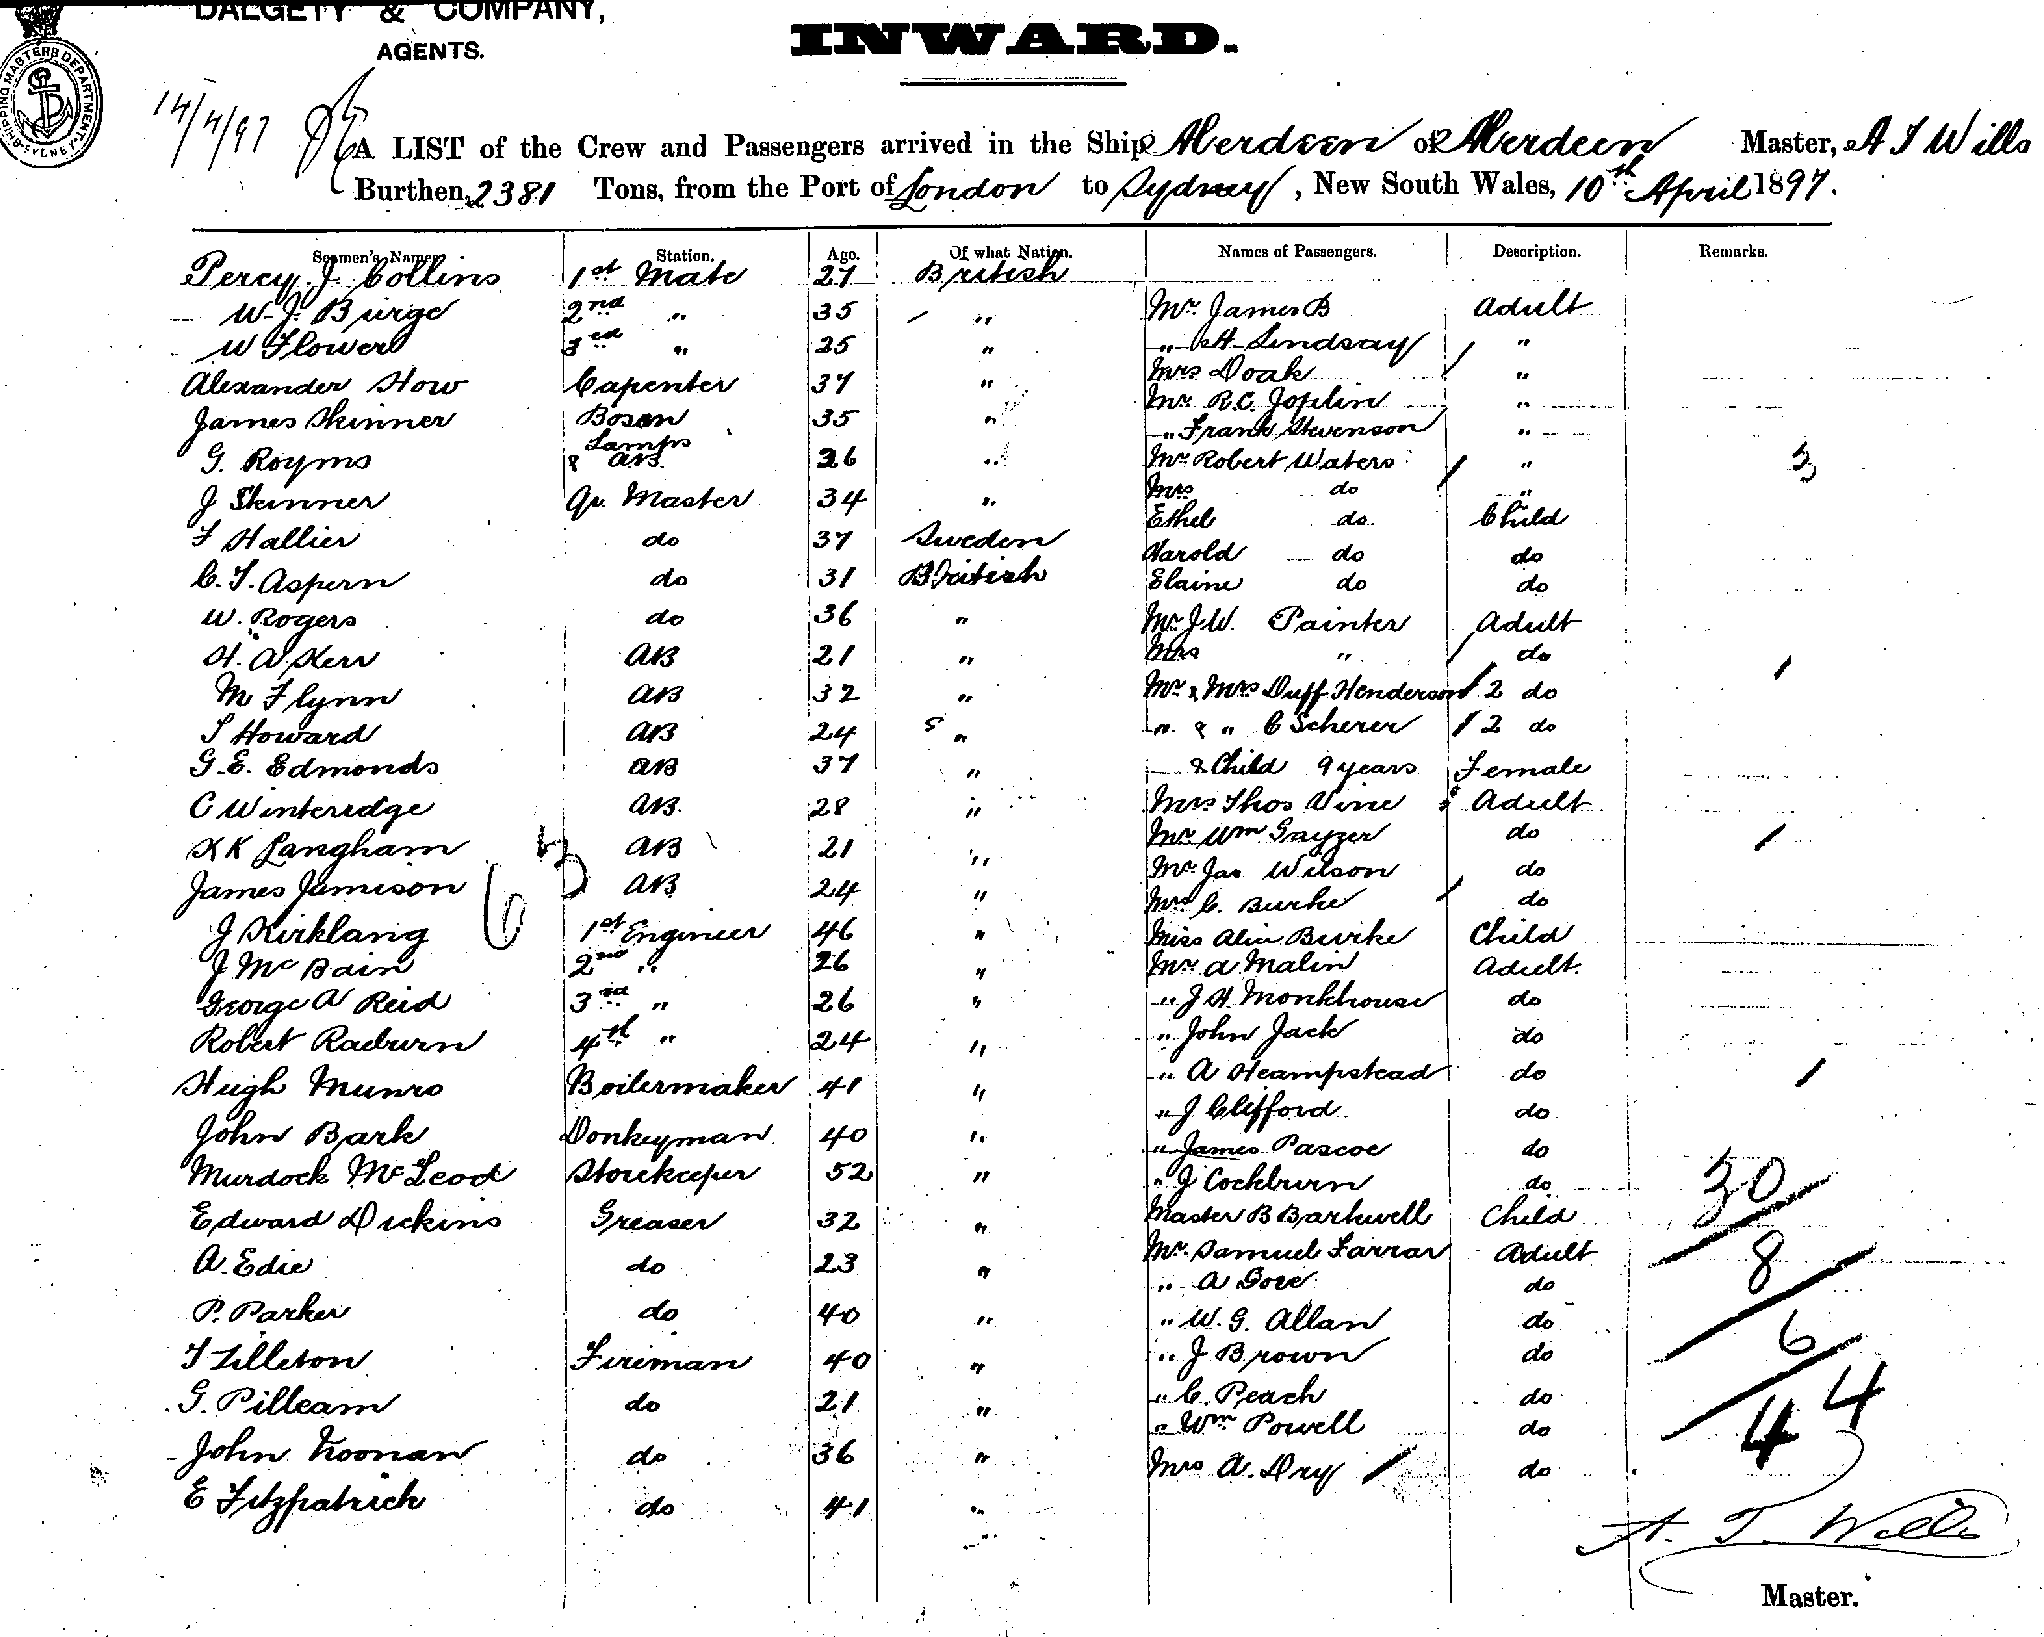 DALGETY & COMPANY,
AGENTS.
INWARD.
SHIPPING MASTERS DEPARTMENT SYDNEY
14/4/97
A LIST of the Crew and Passengers arrived in the Ship Aberdeen of Aberdeen Master, A T Wills
Burthen, 2381 Tons, from the Port of London to Sydney, New South Wales, 10th April 1897.
Seamen's Names. Station. Age. Of what Nation. Names of Passengers. Description. Remarks.
Percy J. Collins 1st Mate 27 British
W. J. Burge 2nd " 35 " Mr. James B Adult
W Flower 3rd " 25 " " H Lindsay "
Alexander How Capenter 37 " Mrs Doak "
James Skinner Bosen 35 " Mr R.C. Joplin "
" Frank Stevenson "
G. Royms Lamps & AB. 26 " Mr Robert Waters " 3
J Skinner Qr. Master 34 " Mrs do "
Ethel do Child
F Hallier do 37 Sweden Harold do do
C. T. Aspern do 31 British Elaine do do
W. Rogers do 36 " Mr J.W. Painter Adult
H. A Kerr AB 21 " Mrs " do 1
M Flynn AB 32 " Mr & Mrs Duff Henderson 2 do
T Howard AB 24 " " & " C Scherer 2 do
G. E. Edmonds AB 37 " & Child 9 years Female
C Winteridge AB 28 " Mrs Thos Vine Adult
K Langham AB 21 " Mr Wm Gayzer do 1
James Jamison AB 24 " Mr Jas Wilson do
Mrs C. Burke do
J Kirklang 1st Engineer 46 " Miss Alice Burke Child
J McBain 2nd " 26 " Mr A Malin Adult
George A Reid 3rd " 26 " " J H Monkhouse do
Robert Raeburn 4th " 24 " " John Jack do
Hugh Munro Boilermaker 41 " " A Heampstead do 1
" J Clifford do
John Bark Donkeyman 40 " " James Pascoe do
Murdock McLeod Storekeeper 52 " " J Cockburn do 30
Edward Dickins Greaser 32 " Master B Barkwell Child
A. Edie do 23 " Mr. Samuel Farrar Adult 8
" A Gore do
P. Parker do 40 " " W. G. Allan do 6
T Lilleton Fireman 40 " " J Brown do
G. Pilleam do 21 " " C. Peach do 44
" Wm Powell do
John Noonan do 36 " Mrs A. Dry do
E Fitzpatrick do 41 "
A. T. Wills
Master.